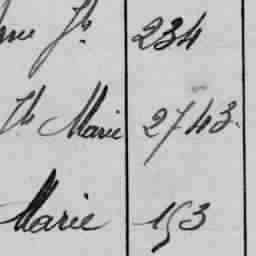 Jh 234
Jh Marie 2743.
Marie 153